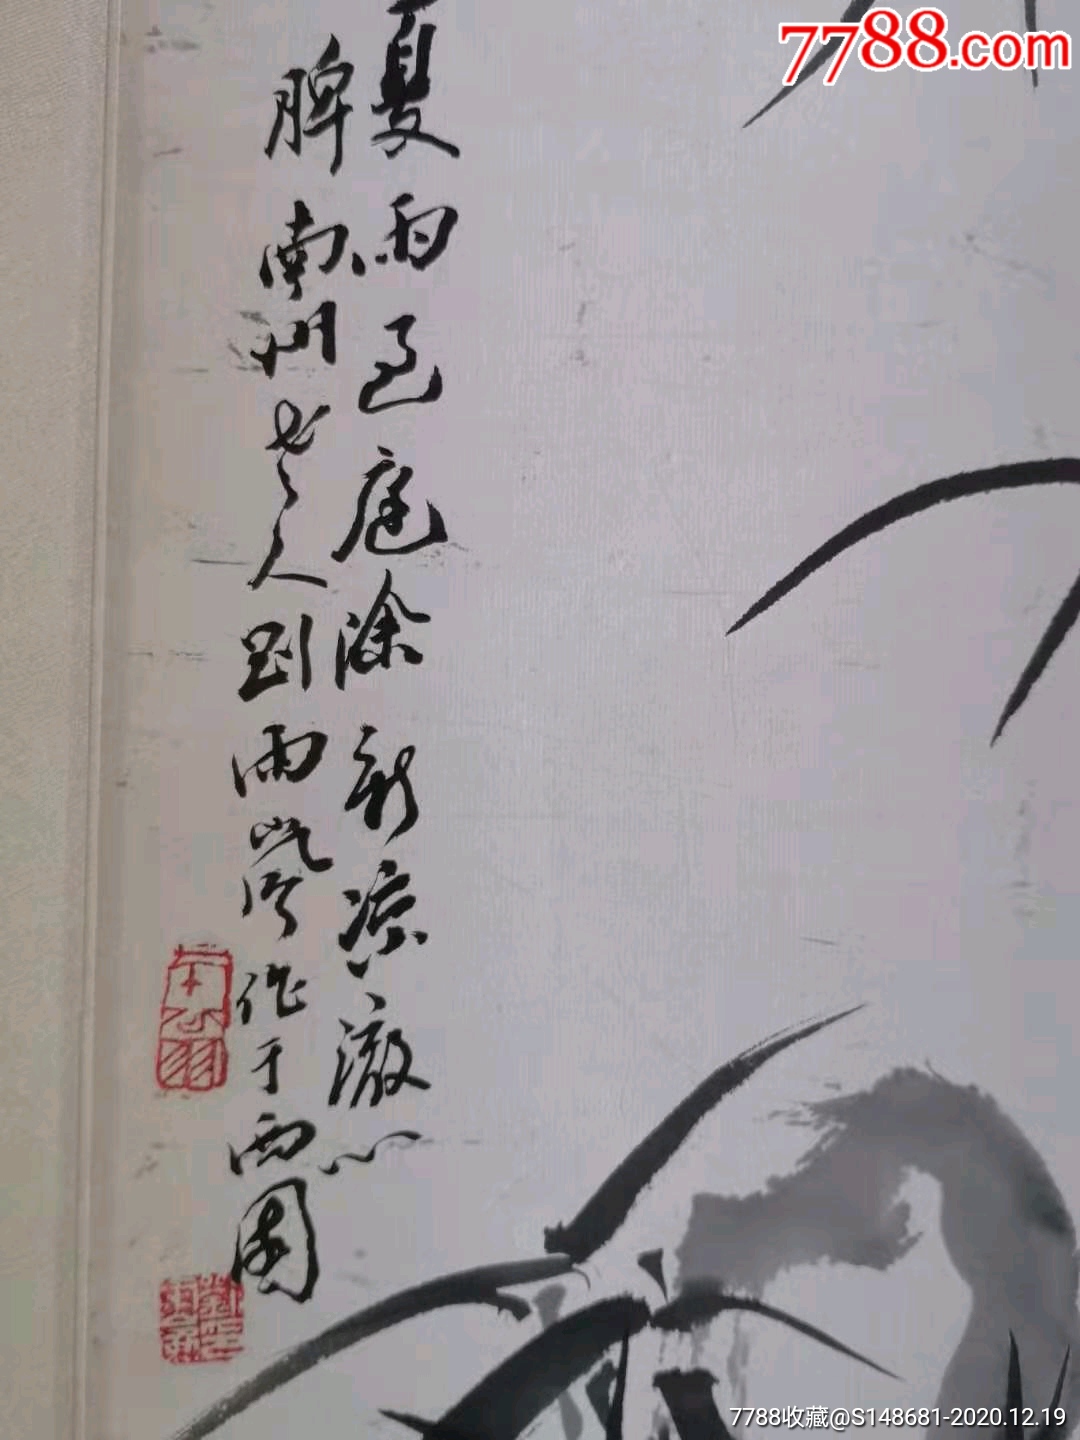 7788.com
夏雨过庭涂新凉澈心
脾南州老人劉雨岑作于西園
7788收藏@S148681-2020.12.19